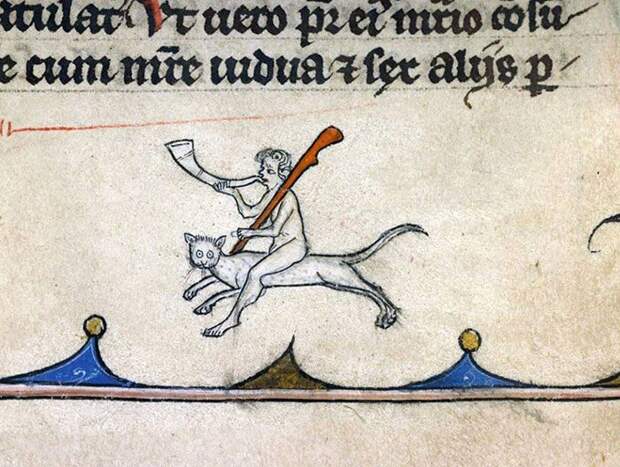 atulat Ut uero pr̄ ei᷑ mr̄io cōsu
e cum mr̄e uidua ⁊ sex alijs p